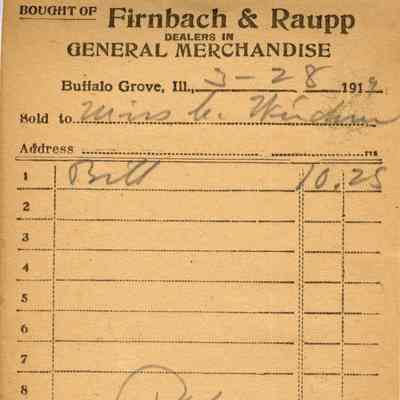 BOUGHT OF Firnbach & Raupp
DEALERS IN
GENERAL MERCHANDISE
Buffalo Grove, Ill., 3-28 1919
Sold to Miss
Address
1 10.25
2
3
4
5
6
7
8